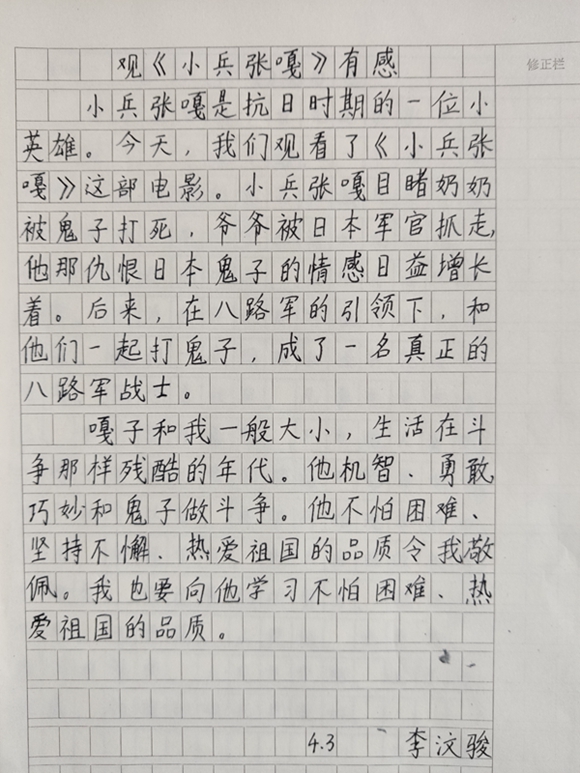 修正栏
观《小兵张嘎》有感
小兵张嘎是抗日时期的一位小
英雄。今天，我们观看了《小兵张
嘎》这部电影。小兵张嘎目睹奶奶
被鬼子打死，爷爷被日本军官抓走，
他那仇恨日本鬼子的情感日益增长
着。后来，在八路军的引领下，和
他们一起打鬼子，成了一名真正的
八路军战士。
嘎子和我一般大小，生活在斗
争那样残酷的年代。他机智、勇敢，
巧妙和鬼子做斗争。他不怕困难、
坚持不懈、热爱祖国的品质令我敬
佩。我也要向他学习不怕困难、热
爱祖国的品质。
4.3 李汶骏